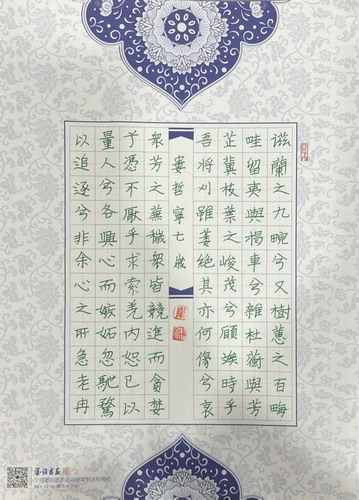 滋蘭之九畹兮又樹蕙之百畮
畦留夷與揭車兮雜杜蘅與芳
芷冀枝葉之峻茂兮願竢時乎
吾將刈雖萎絕其亦何傷兮哀
婁哲寧七歲
衆芳之蕪穢衆皆競進而貪婪
兮憑不厭乎求索羌內恕己以
量人兮各興心而嫉妬忽馳騖
以追逐兮非余心之所急老冉